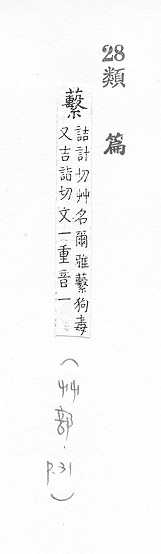 28
類篇
蘻
詰計切艸名爾雅蘻狗毒
又吉詣切文一重音一
(艸部.
p.31)